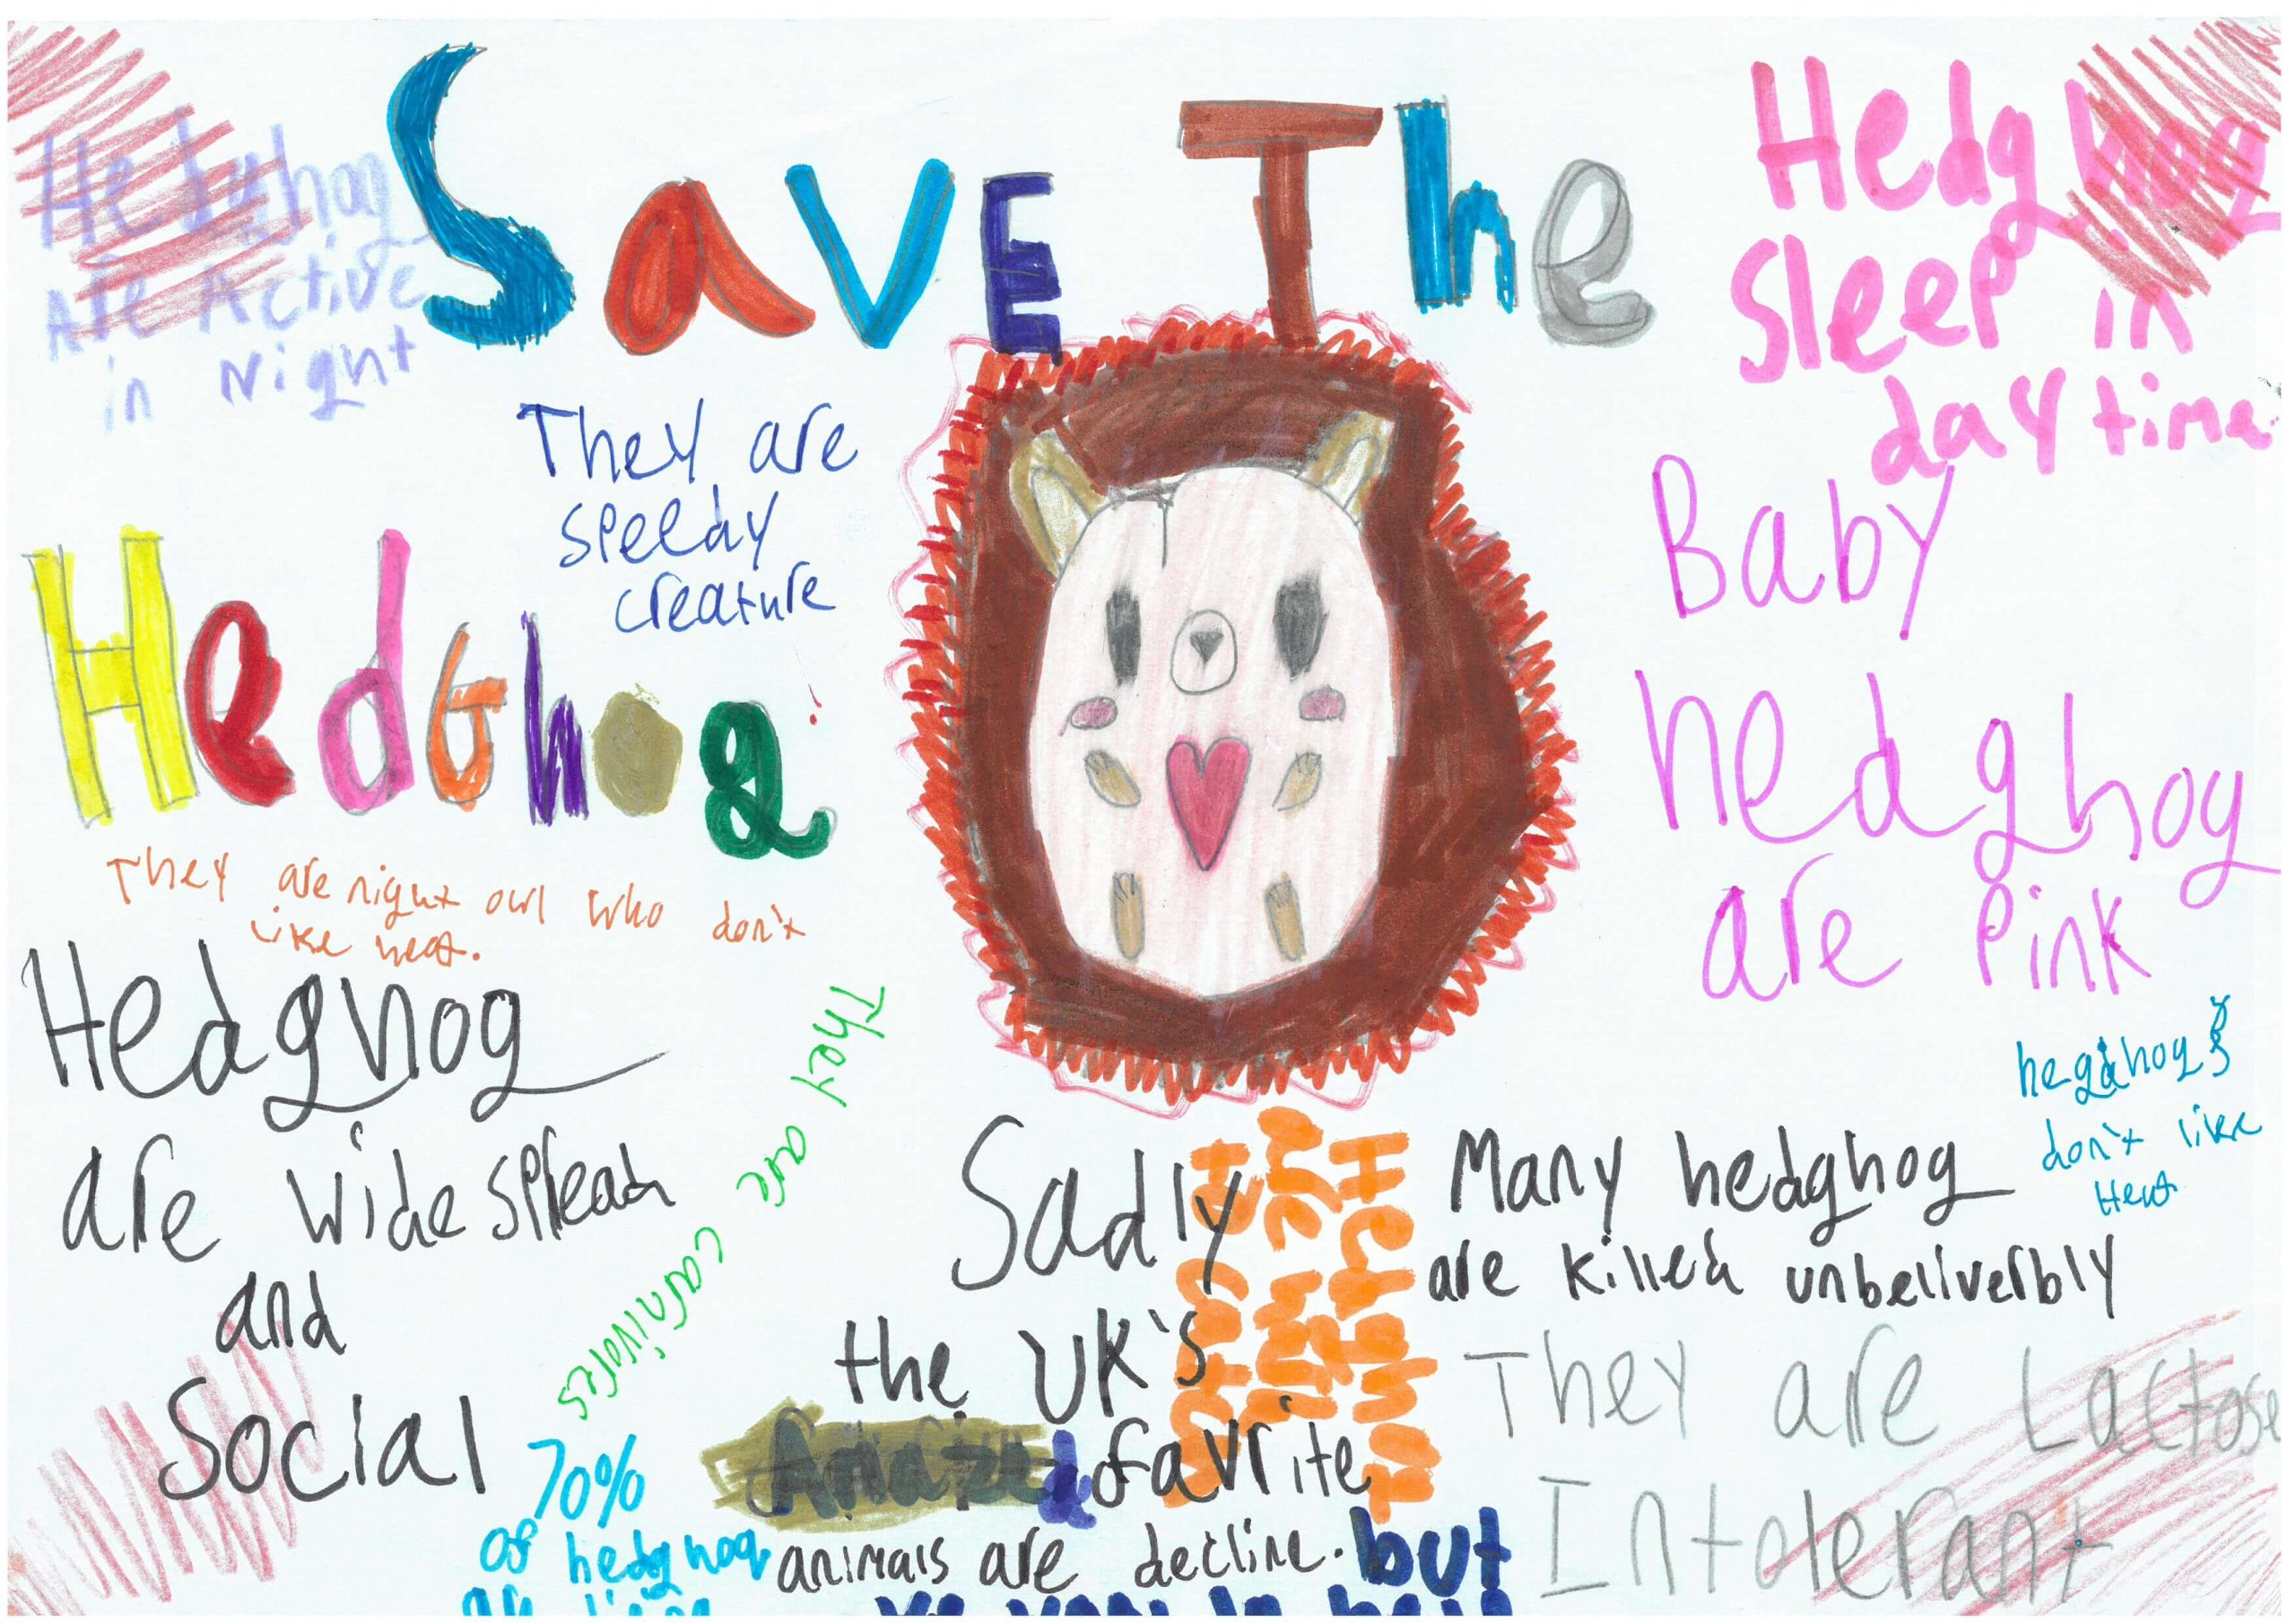 Save The
Hedghog
Hedghog
Are Active
in Night
They are
speedy
creature
Hedghog
Sleep in
day time
Baby
hedghog
are Pink
They are night owl who don't
like heat.
Hedghog
are wide spread
and
Social
They are carniverers
70%
of hedghog
Sadly
the UK's
favrite
animals are decline. but
Many hedghog
are killed unbeliverbly
hegdhogs
don't like
Heat
They are Lactose
Intolerant